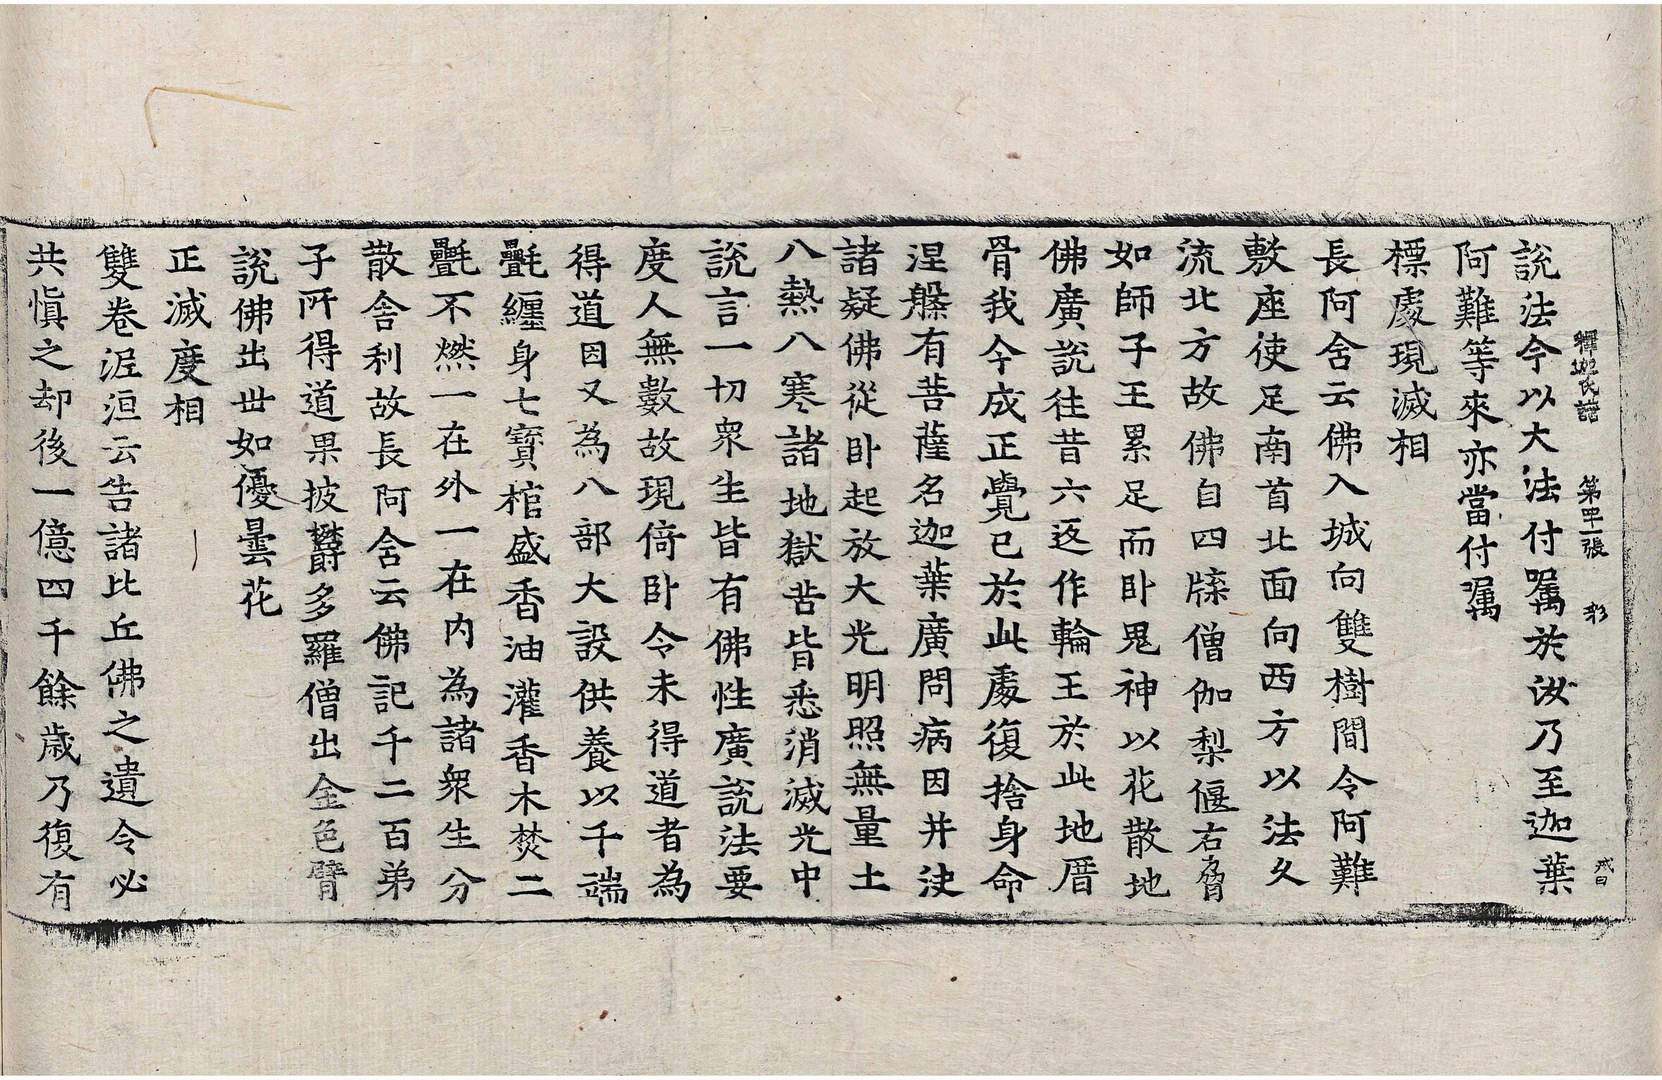 釋迦氏譜 第四二張 彩
戒曰
說法今以大法付囑於汝乃至迦葉
阿難等來亦當付囑
標處現滅相
長阿舍云佛入城向雙樹間令阿難
敷座使足南首北面向西方以法久
流北方故佛自四牒僧伽梨偃右脅
如師子王累足而卧鬼神以花散地
佛廣說往昔六返作輪王於此地厝
骨我今成正覺已於此處復捨身命
涅槃有菩薩名迦葉廣問病因并决
諸疑佛從卧起放大光明照無量土
八熱八寒諸地獄苦皆悉消滅光中
說言一切衆生皆有佛性廣說法要
度人無數故現倚卧令未得道者為
得道因又為八部大設供養以千端
㲲纏身七寶棺盛香油灌香木焚二
㲲不燃一在外一在内為諸衆生分
散舍利故長阿含云佛記千二百弟
子所得道果披欝多羅僧出金色臂
說佛出世如優曇花
正滅度相
雙卷泥洹云告諸比丘佛之遺令必
共愼之却後一億四千餘歲乃復有